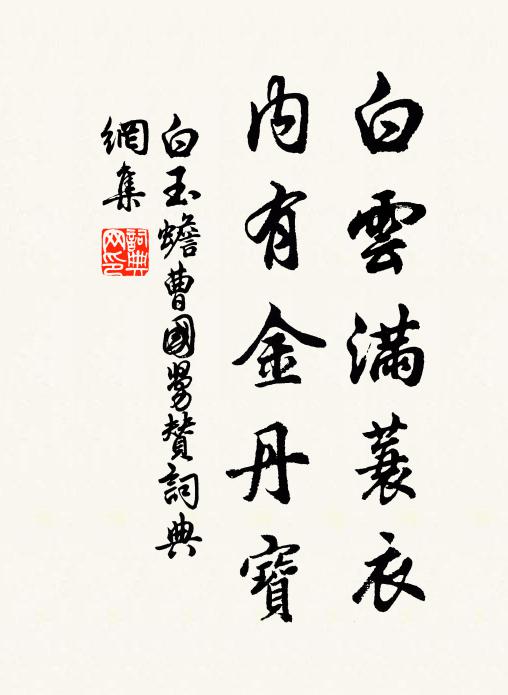 白雲滿蓑衣
內有金丹寶
白玉蟾曹國舅贊詞典
網集
詞典
网印